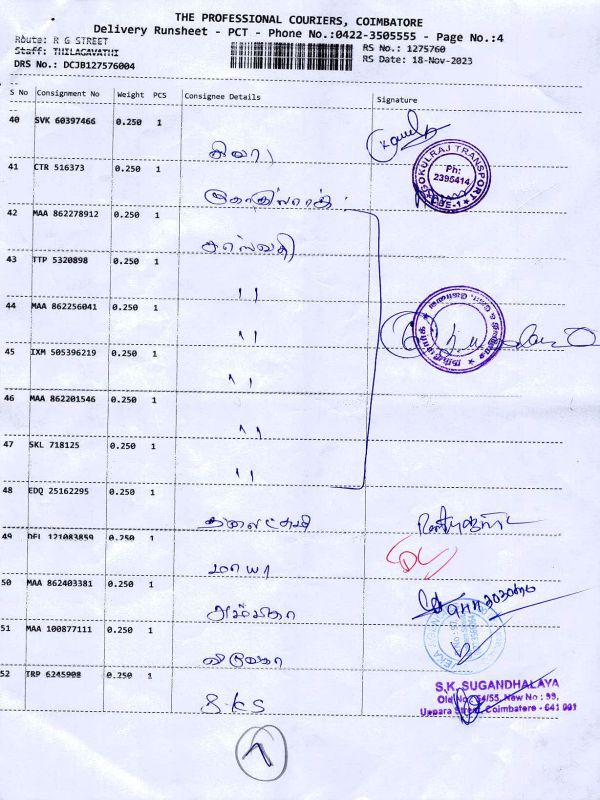 THE PROFESSIONAL COURIERS, COIMBATORE
Delivery Runsheet - PCT - Phone No.:0422-3505555 - Page No.:4
Route: R G STREET
Staff: THILAGAVATHI
DRS No.: DCJB127576004
RS No.: 1275760
RS Date: 18-Nov-2023
S No Consignment No Weight PCS Consignee Details Signature
40 SVK 60397466 0.250 1
GOKULRAJ TRANSPORT
Ph: 2395414
41 CTR 516373 0.250 1
42 MAA 862278912 0.250 1
சரஸ்வதி
43 TTP 5320898 0.250 1
"
44 MAA 862256041 0.250 1
"
45 IXM 505396219 0.250 1
"
46 MAA 862201546 0.250 1
"
47 SKL 718125 0.250 1
"
48 EDQ 25162295 0.250 1
49 DEL 121083859 0.250 1
மாயா
50 MAA 862403381 0.250 1
அம்பிகா
51 MAA 100877111 0.250 1
52 TRP 6245908 0.250 1
S.K.S
S.K. SUGANDHALAYA
Old No: 54/55, New No : 99,
Uppara Street, Coimbatore - 641 001